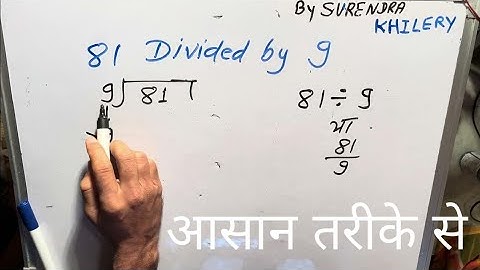 By SURENDRA
KHILERY
81 Divided by 9
9 81
81 ÷ 9
या
81
9
आसान तरीके से